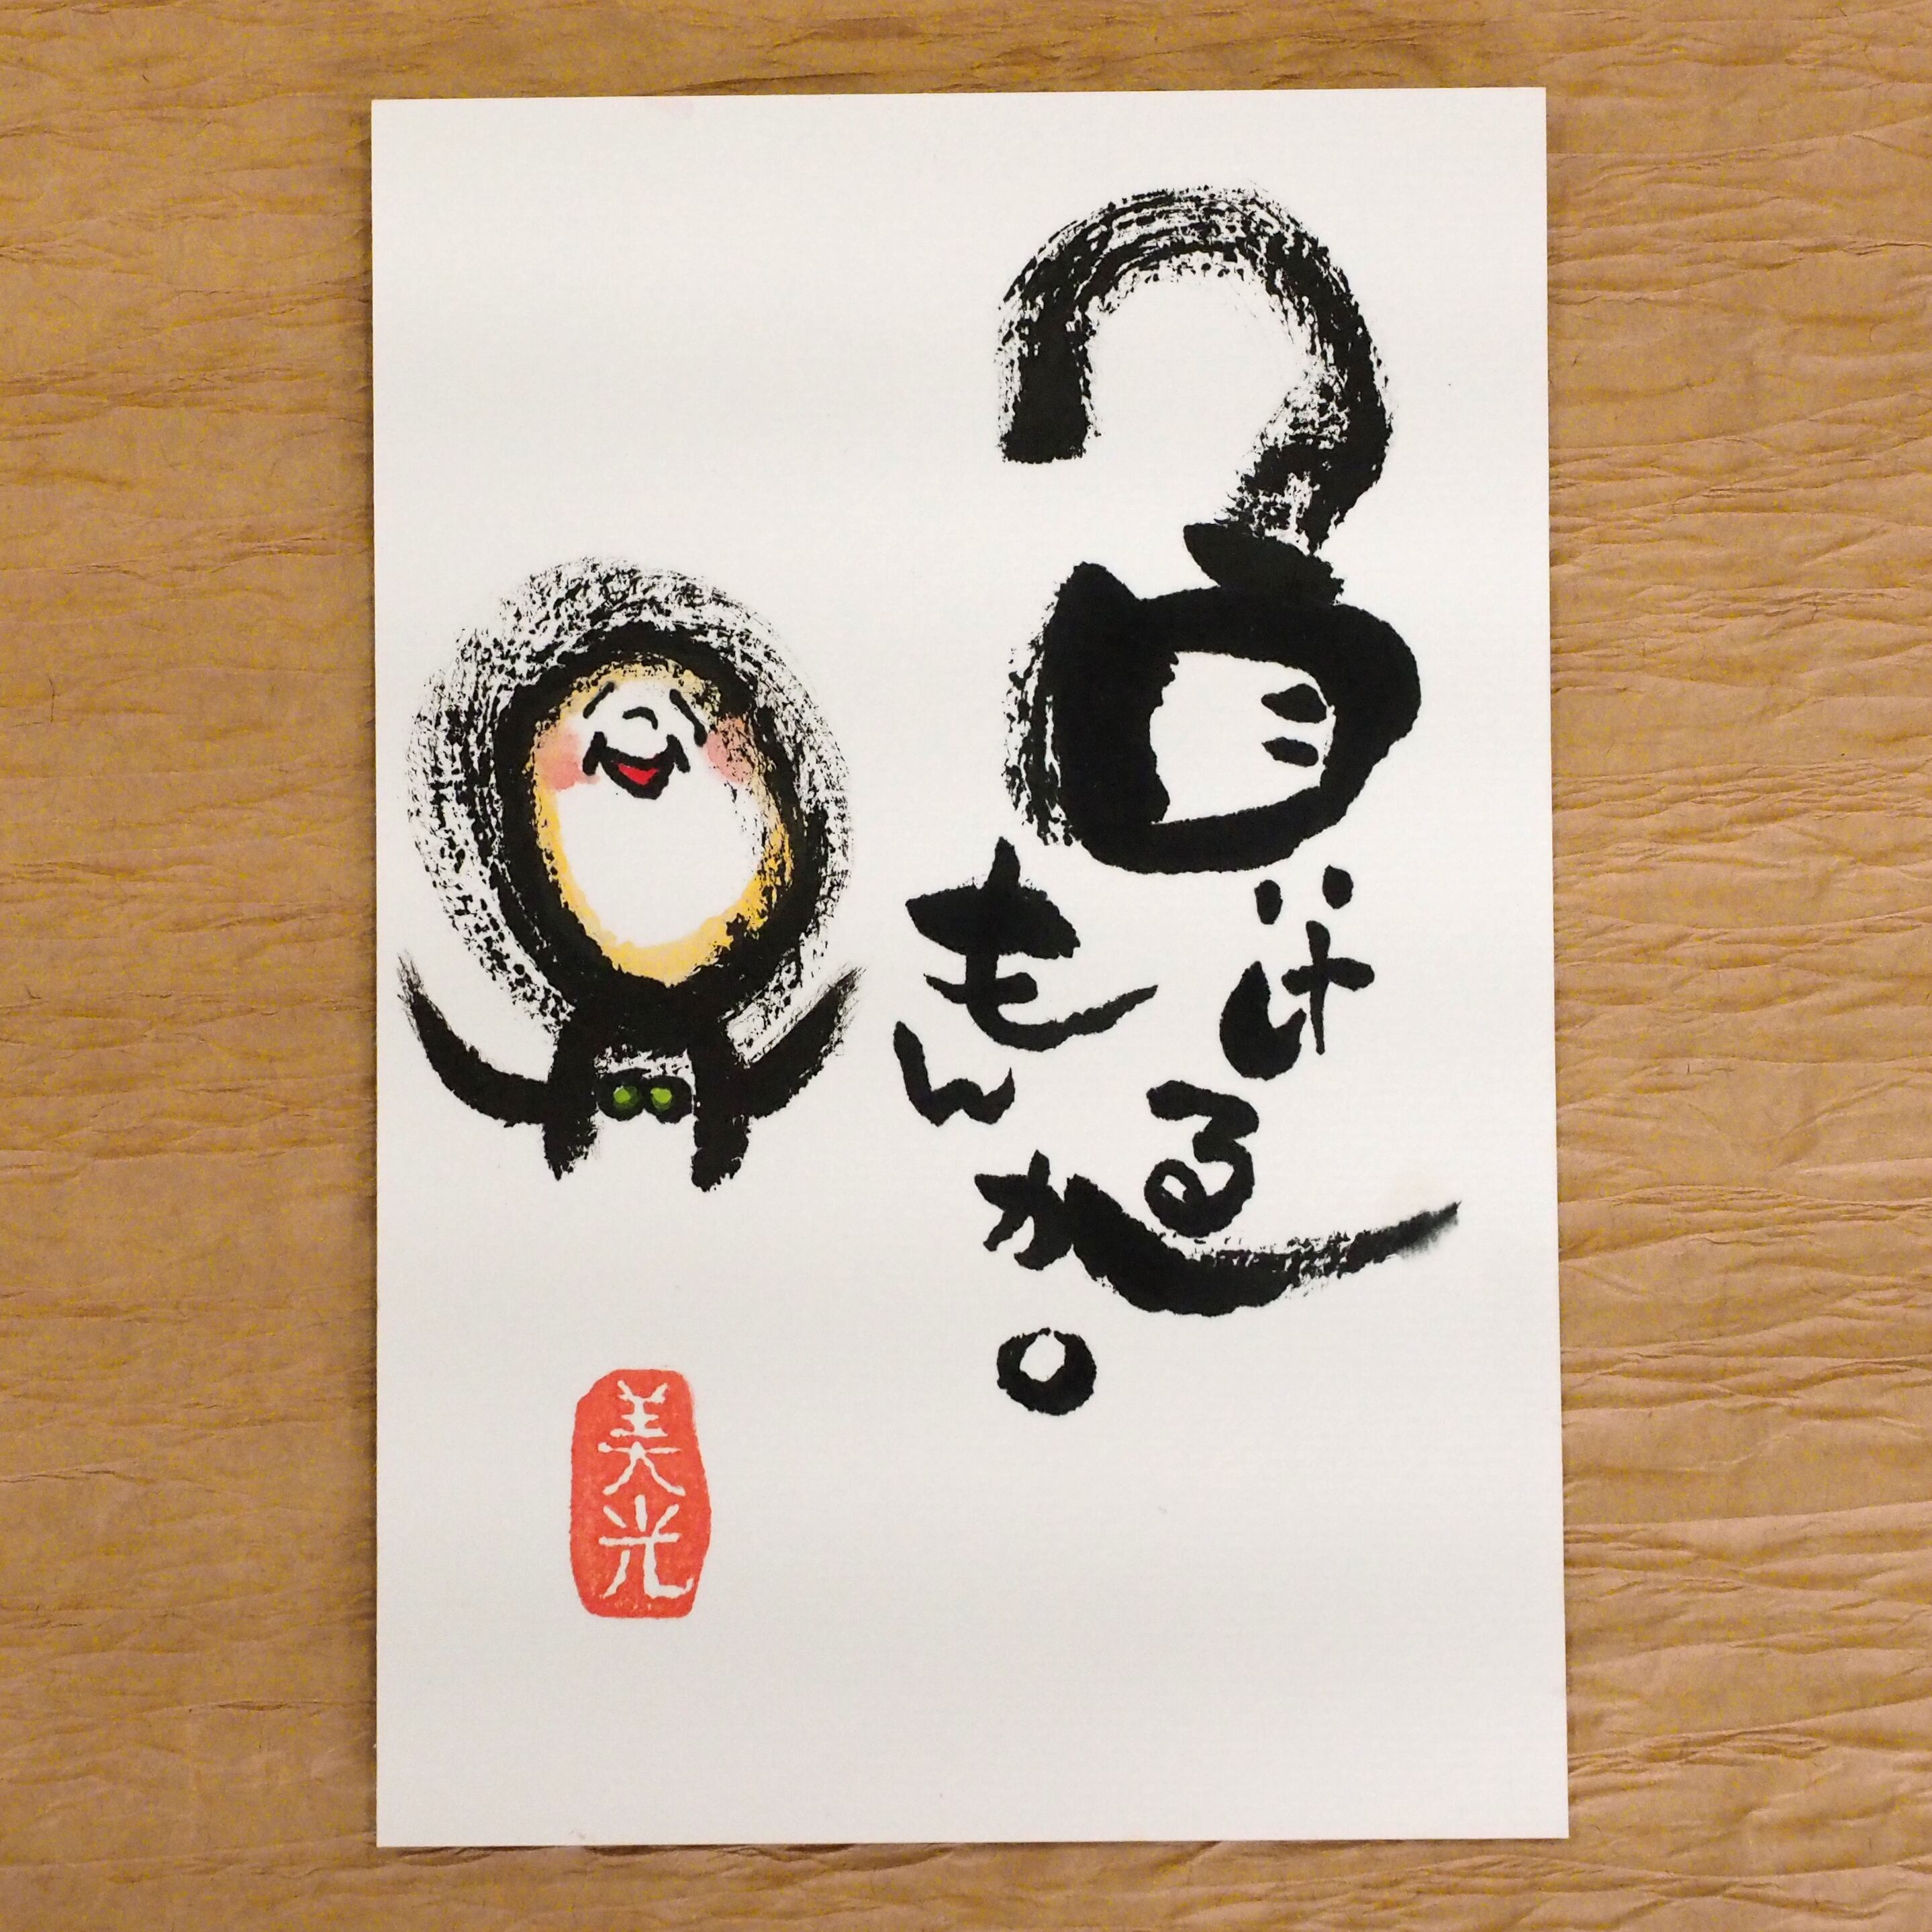 負ける
もんか。
美光